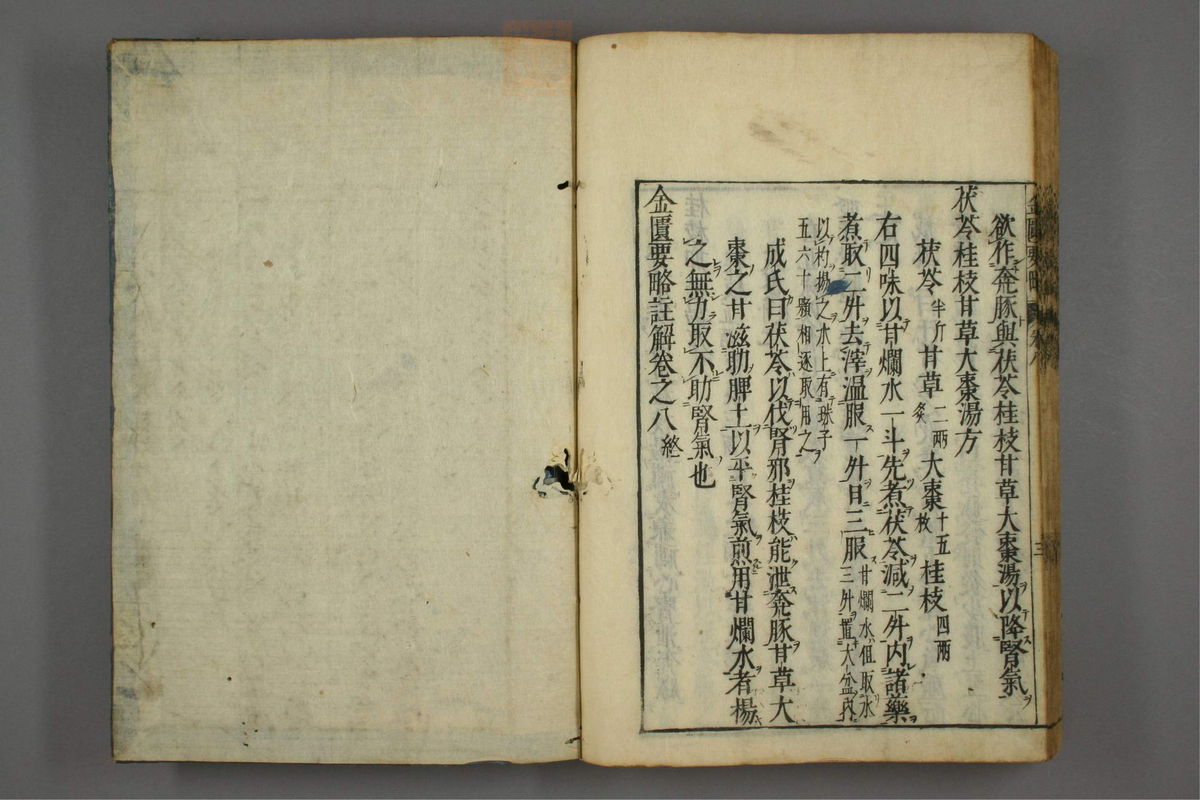 欲作奔豚與茯苓桂枝甘草大棗湯以降腎氣
茯苓桂枝甘草大棗湯方
茯苓半斤甘草二兩炙大棗十五枚桂枝四兩
右四味以甘爛水一斗先煮茯苓減二升内諸藥
煮取二升去滓温服一升日三服甘爛水法取水三升置大盆内
以杓揚之水上有珠子五六十顆相逐取用之
成氏曰茯苓以伐腎邪桂枝能泄奔豚甘草大
棗之甘滋助脾土以平腎氣煎用甘爛水者揚
之無力取不助腎氣也
金匱要略註解卷之八終